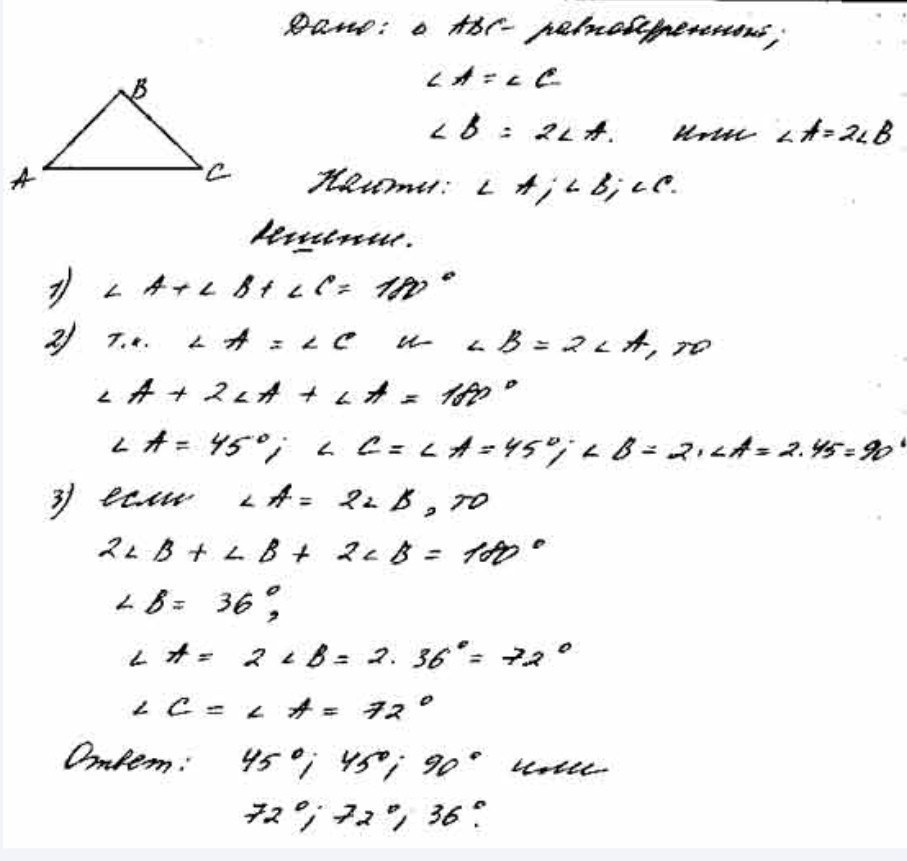 Дано: △ ABC - равнобедренный;
∠A = ∠C
∠B = 2∠A. или ∠A = 2∠B
B
A
C
Найти: ∠A; ∠B; ∠C.
Решение.
1) ∠A + ∠B + ∠C = 180°
2) т.к. ∠A = ∠C и ∠B = 2∠A, то
∠A + 2∠A + ∠A = 180°
∠A = 45°; ∠C = ∠A = 45°; ∠B = 2·∠A = 2·45 = 90°
3) если ∠A = 2∠B, то
2∠B + ∠B + 2∠B = 180°
∠B = 36°,
∠A = 2∠B = 2·36° = 72°
∠C = ∠A = 72°
Ответ: 45°; 45°; 90° или
72°; 72°; 36°.